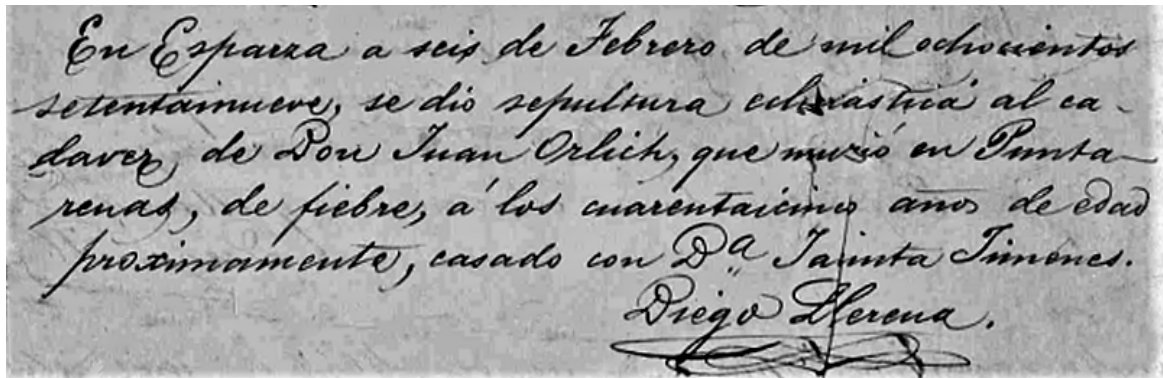 En Esparza a seis de Febrero de mil ochocientos
setentainueve, se dió sepultura eclesiástica al ca-
daver, de Don Juan Orlich, que murió en Punta-
renas, de fiebre, á los cuarentaicinco años de edad
proximamente, casado con Dª Jacinta Jimenes.
Diego Llerena.